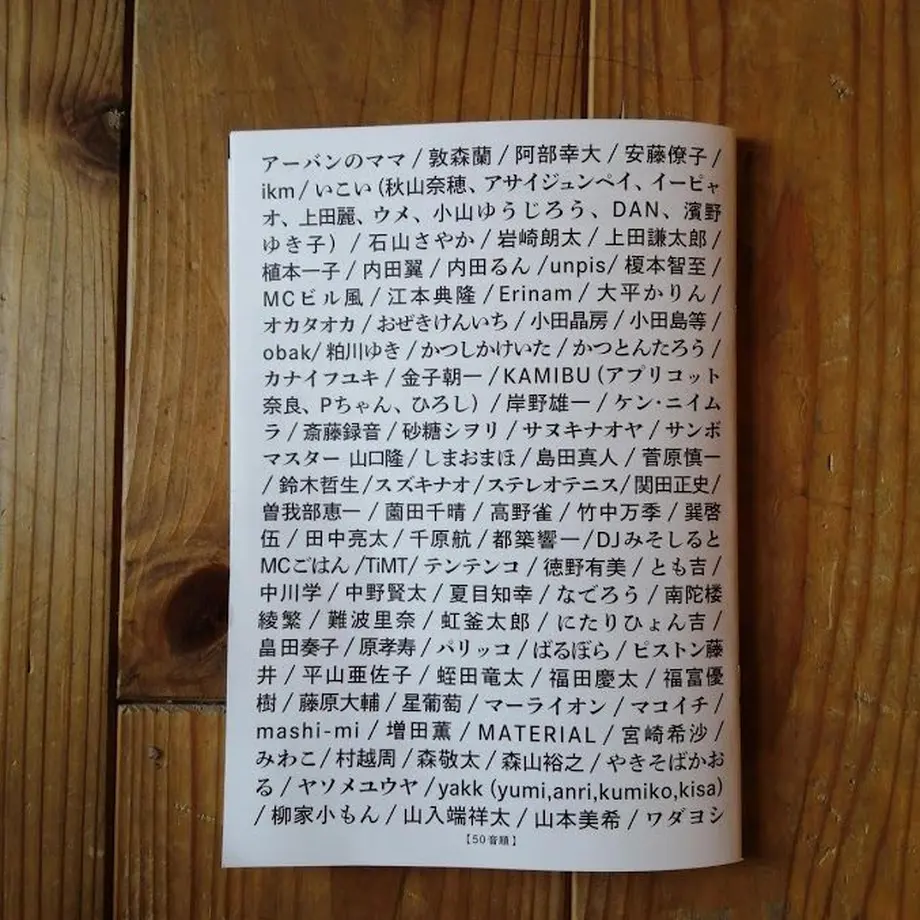 アーバンのママ / 敦森蘭 / 阿部幸大 / 安藤僚子 /
ikm / いこい (秋山奈穂、アサイジュンペイ、イーピャ
オ、上田麗、ウメ、小山ゆうじろう、DAN、濱野
ゆき子) / 石山さやか / 岩崎朗太 / 上田謙太郎 /
植本一子 / 内田翼 / 内田るん /unpis/ 榎本智至 /
MCビル風 / 江本典隆 / Erinam / 大平かりん /
オカタオカ / おぜきけんいち / 小田晶房 / 小田島等 /
obak/ 粕川ゆき / かつしかけいた / かつとんたろう /
カナイフユキ / 金子朝一 / KAMIBU (アプリコット
奈良、Pちゃん、ひろし) / 岸野雄一 / ケン・ニイム
ラ / 斎藤録音 / 砂糖シヲリ / サヌキナオヤ / サンボ
マスター 山口隆 / しまおまほ / 島田真人 / 菅原慎一
/ 鈴木哲生 / スズキナオ / ステレオテニス / 関田正史/
曽我部恵一 / 薗田千晴 / 高野雀 / 竹中万季 / 巽啓
伍 / 田中亮太 / 千原航 / 都築響一 /DJみそしると
MCごはん /TiMT/ テンテンコ / 徳野有美 / とも吉 /
中川学 / 中野賢太 / 夏目知幸 / なでろう / 南陀楼
綾繁 / 難波里奈 / 虹釜太郎 / にたりひょん吉 /
畠田奏子 / 原孝寿 / パリッコ / ばるぼら / ピストン藤
井 / 平山亜佐子 / 蛭田竜太 / 福田慶太 / 福富優
樹 / 藤原大輔 / 星葡萄 / マーライオン / マコイチ /
mashi-mi / 増田薫 / MATERIAL / 宮崎希沙 /
みわこ / 村越周 / 森敬太 / 森山裕之 / やきそばかお
る / ヤソメユウヤ / yakk (yumi,anri,kumiko,kisa)
/ 柳家小もん / 山入端祥太 / 山本美希 / ワダヨシ
【50音順】